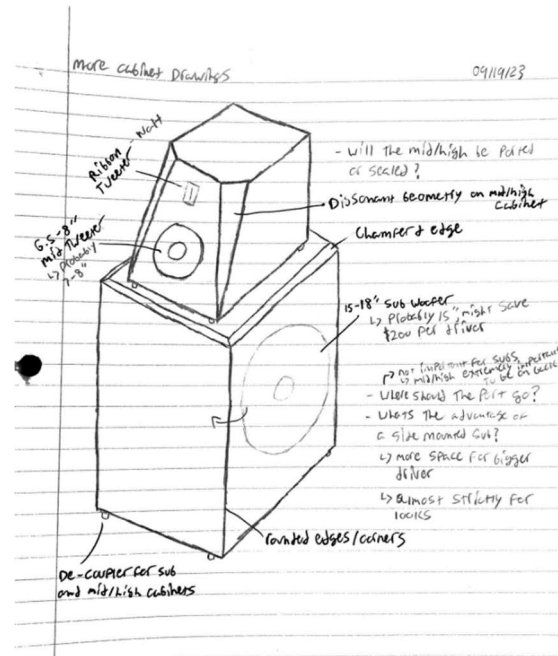 more cabinet Drawings
09/19/23
Ribbon
Tweeter
- Will the mid/high be Ported
or sealed?
Dissonant Geometry on mid/high
cabinet
6.5-8"
mid Tweeter
↳ Probably
7-8"
Chamferd edge
15-18" Sub woofer
↳ Probably 15" might Save
$200 per driver
↱ not important for subs
↳ mid/high extremely important
To be on
- Where should the Port go?
- Whats the advantage of
a side mounted Sub?
↳ more space for bigger
driver
↳ almost strictly for
looks
rounded edges/corners
De-coupler for sub
and mid/high cabinets